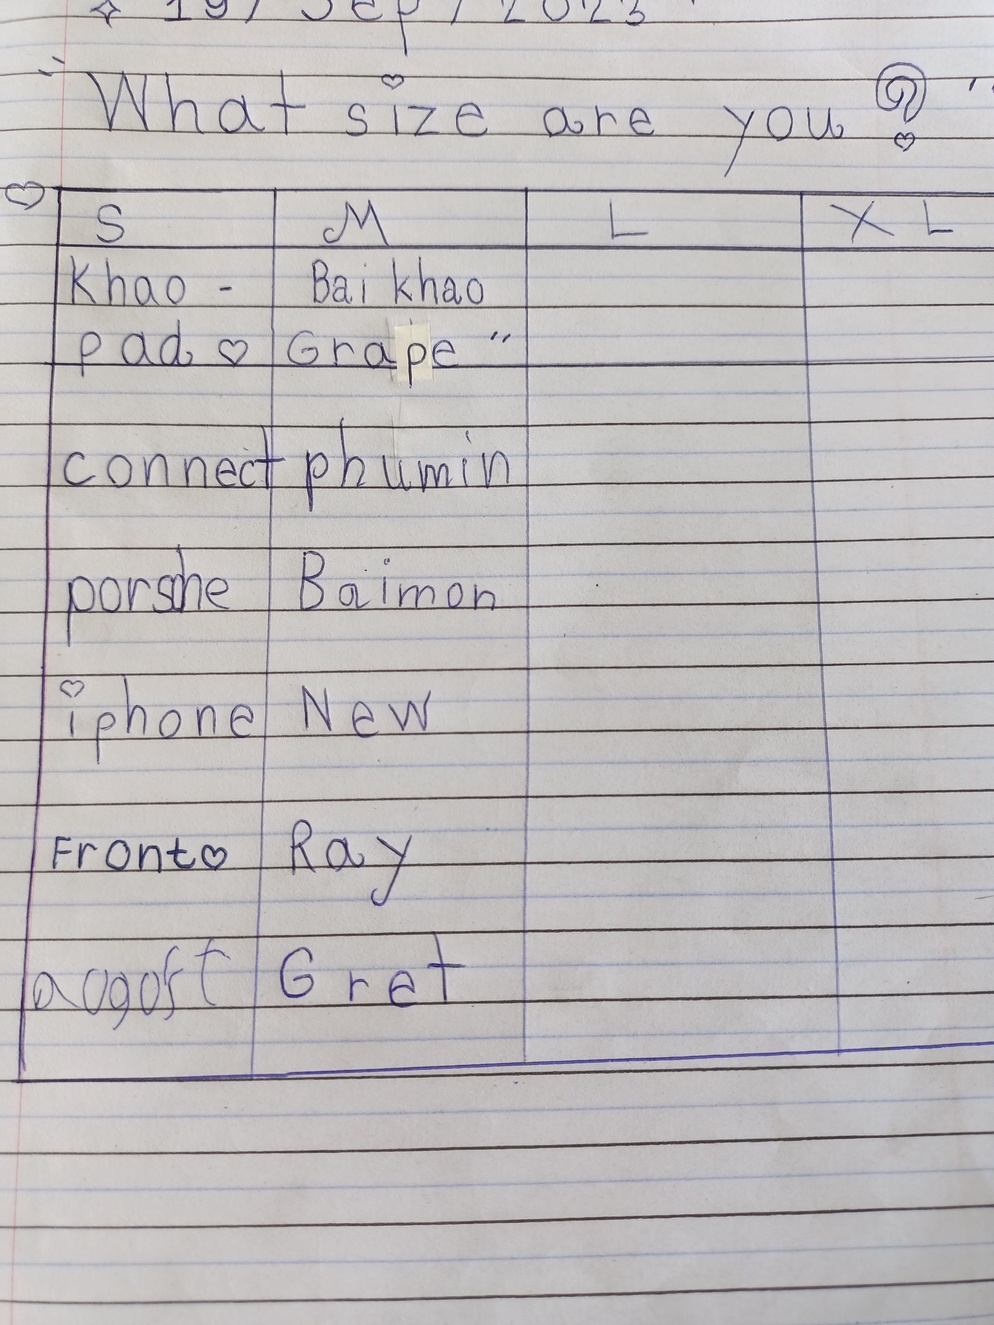 19/ Sep / 2023
"What size are you?"
S M L XL
Khao - Bai khao
pad Grape "
connect phumin
porshe Baimon
iphone New
Front Ray
aogoft Gret